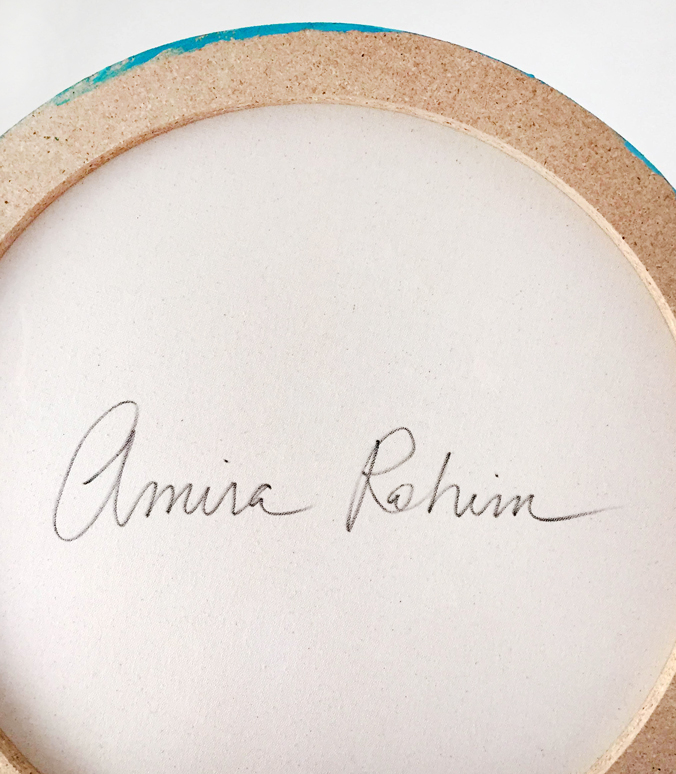 Amira Rahim